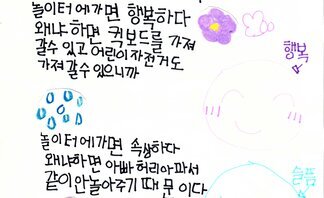 놀이터에가면 행복하다
왜냐 하면 퀵보드를 가져
갈수 있고 어린이 자전거도
가져 갈수 있으니까
행복
놀이 터에가면 속상하다
왜냐하면 아빠 허리아파서
같이 안놀아주기 때 문 이다
슬픔